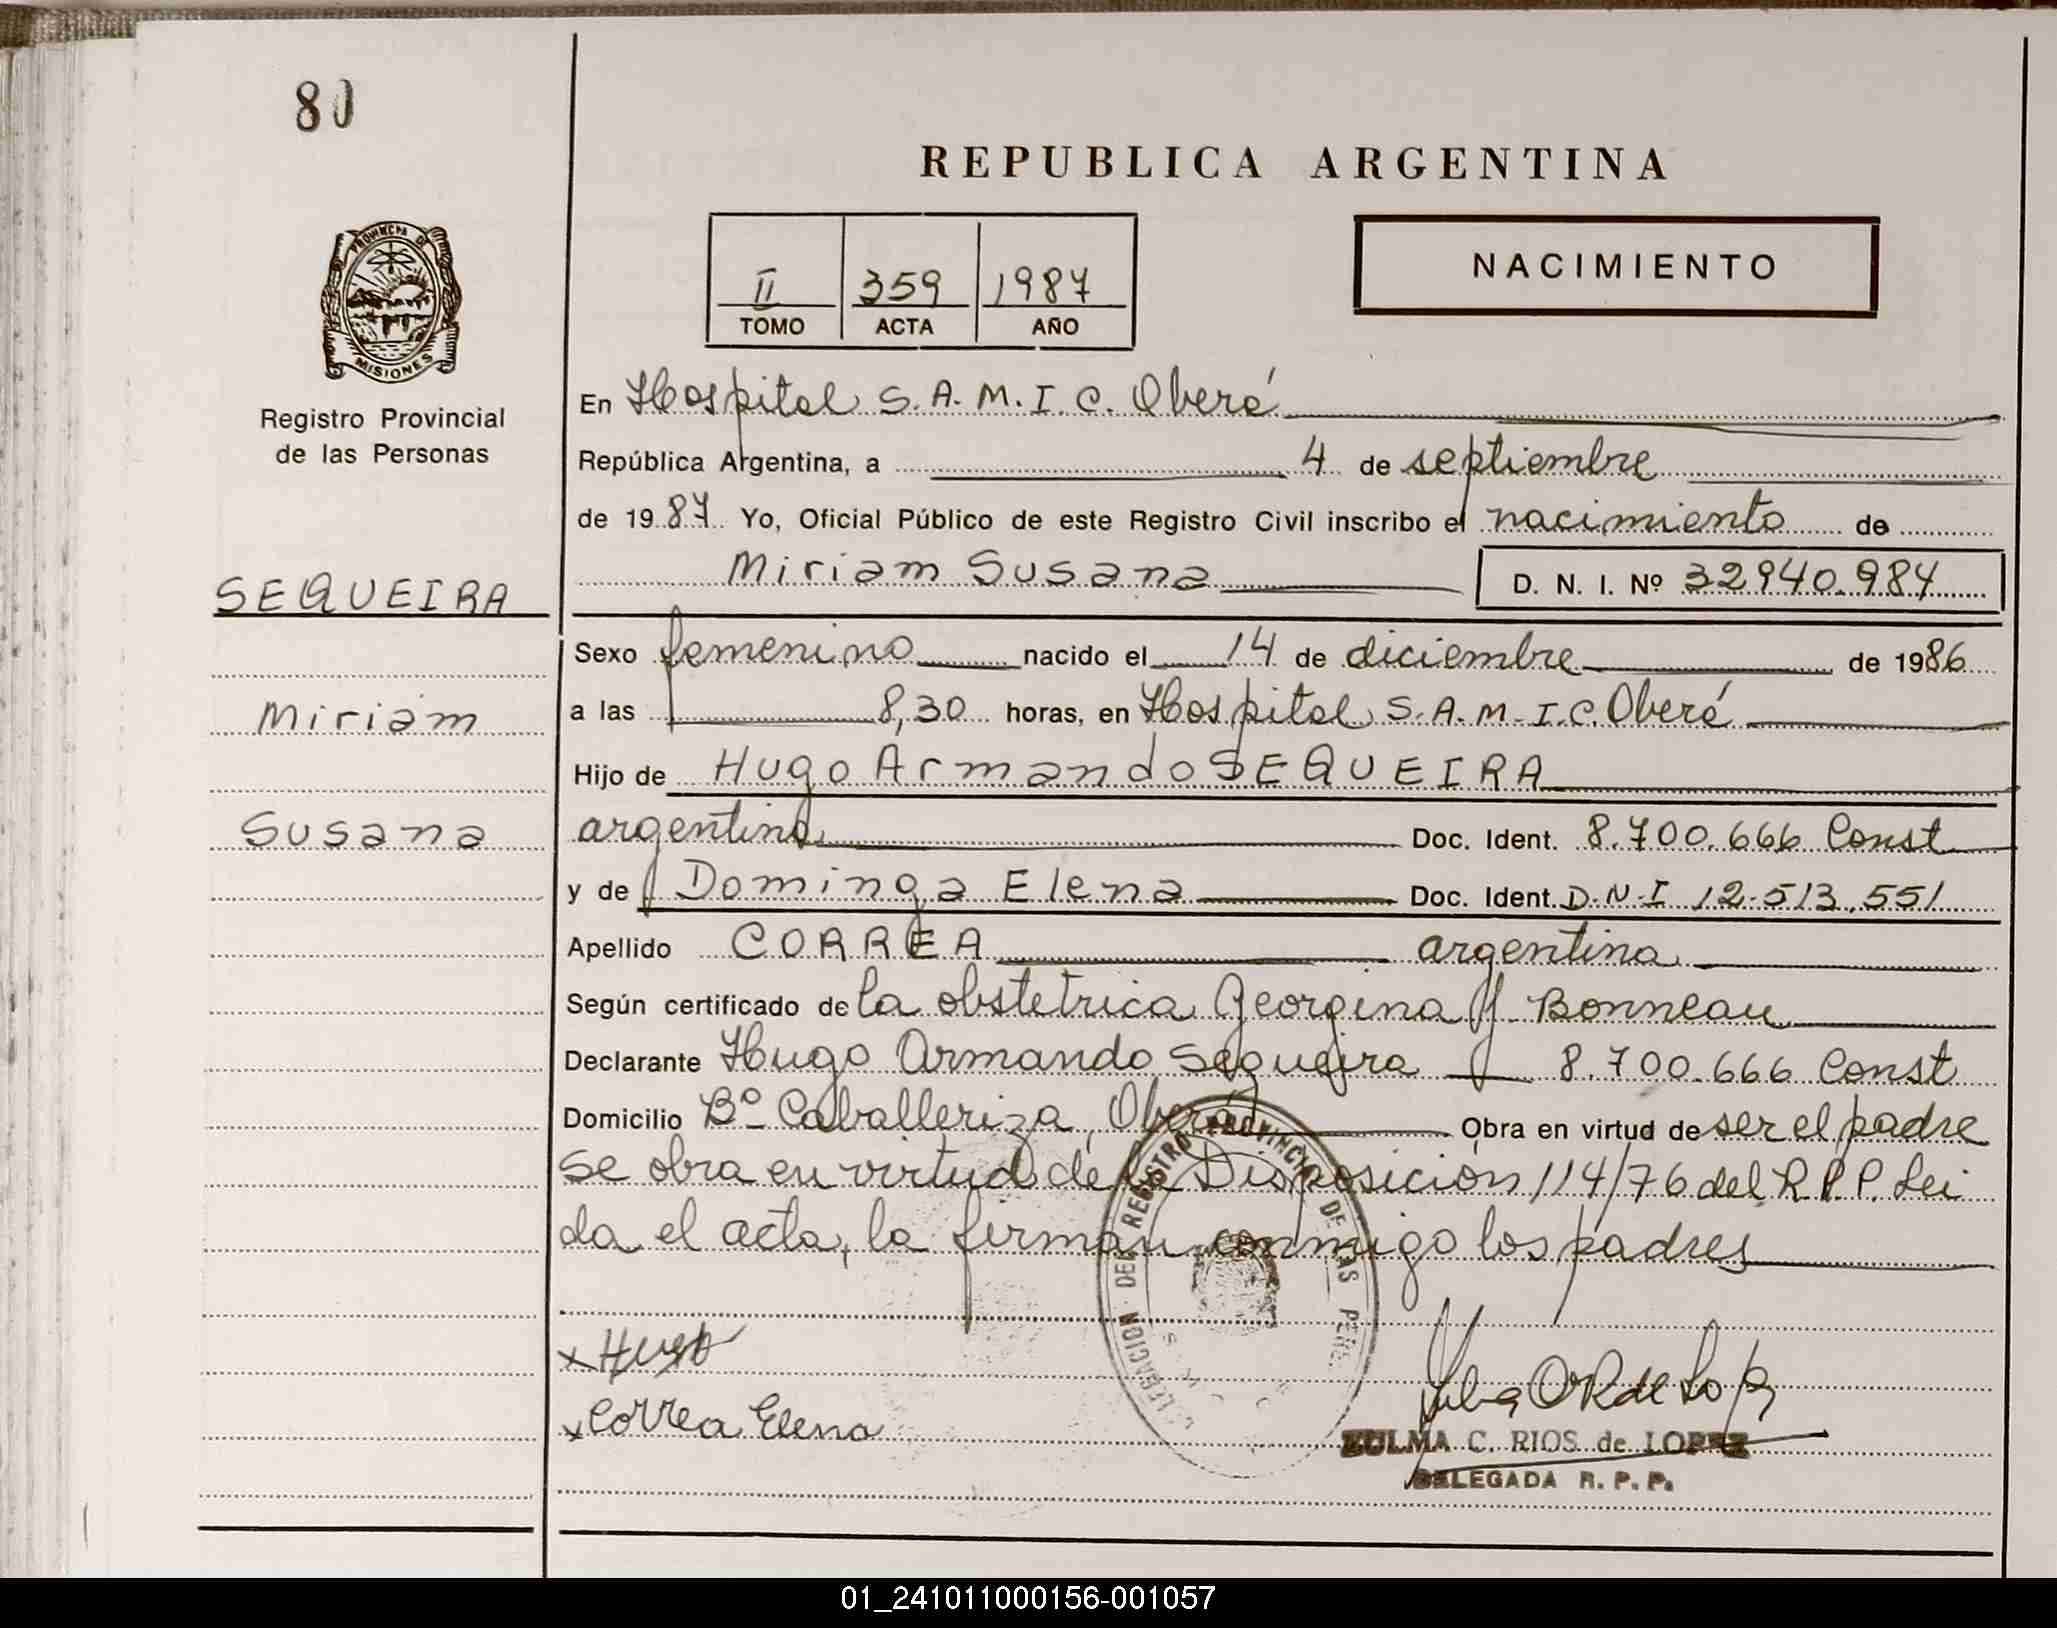 80
REPUBLICA ARGENTINA
II 359 1987
TOMO ACTA AÑO
NACIMIENTO
PROVINCIA DE
MISIONES
Registro Provincial
de las Personas
SEQUEIRA
Miriam
Susana
En Hospital S.A.M.I.C. Oberá
República Argentina, a 4 de septiembre
de 1987. Yo, Oficial Público de este Registro Civil inscribo el nacimiento de
Miriam Susana D. N. I. Nº 32940.984
Sexo femenino nacido el 14 de diciembre de 1986
a las 8,30 horas, en Hospital S.A.M.I.C. Oberá
Hijo de Hugo Armando SEQUEIRA
argentino Doc. Ident. 8.700.666 Const
y de Dominga Elena Doc. Ident. D.N.I 12.513.551
Apellido CORREA argentina
Según certificado de la obstetrica Georgina Y. Bonneau
Declarante Hugo Armando Sequeira 8.700.666 Const
Domicilio Bº Caballeriza, Oberá Obra en virtud de ser el padre
se obra en virtud de la Disposición 114/76 del R.P.P. Lei
da el acta, la firman conmigo los padres
DELEGACION DEL REGISTRO PROVINCIAL DE LAS PERS.
x Hugo
x Correa Elena
ZULMA C. RIOS de LOPEZ
DELEGADA R. P. P.
01_241011000156-001057